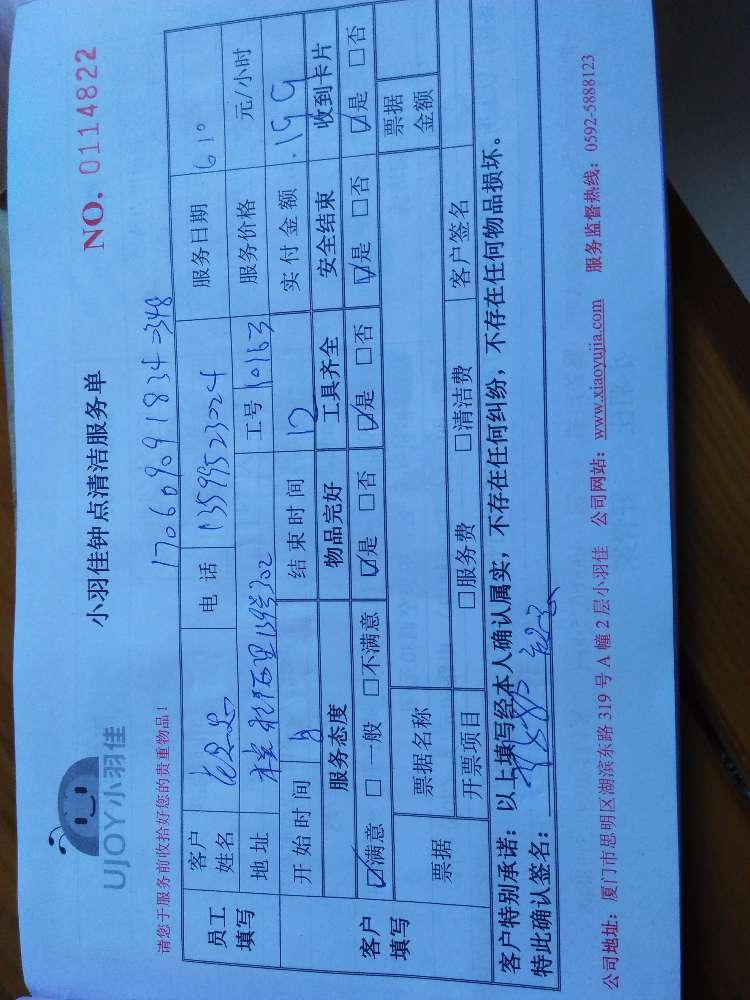 UJOY小羽佳
小羽佳钟点清洁服务单
NO. 0114822
请您于服务前收拾好您的贵重物品！
17060909 1834 =348
员工填写 客户姓名 电话 13599523024 服务日期 610
地址 302 工号 10163 服务价格 元/小时
客户填写 开始时间 8 结束时间 12 实付金额 199
服务态度 物品完好 工具齐全 安全结束 收到卡片
☑满意 □一般 □不满意 ☑是 □否 ☑是 □否 ☑是 □否 ☑是 □否
票据 票据名称 票据金额
开票项目 □服务费 □清洁费 客户签名
客户特别承诺：以上填写经本人确认属实，不存在任何纠纷，不存在任何物品损坏。
特此确认签名：
公司地址：厦门市思明区湖滨东路319号A幢2层小羽佳 公司网站：www.xiaoyujia.com 服务监督热线：0592-5888123